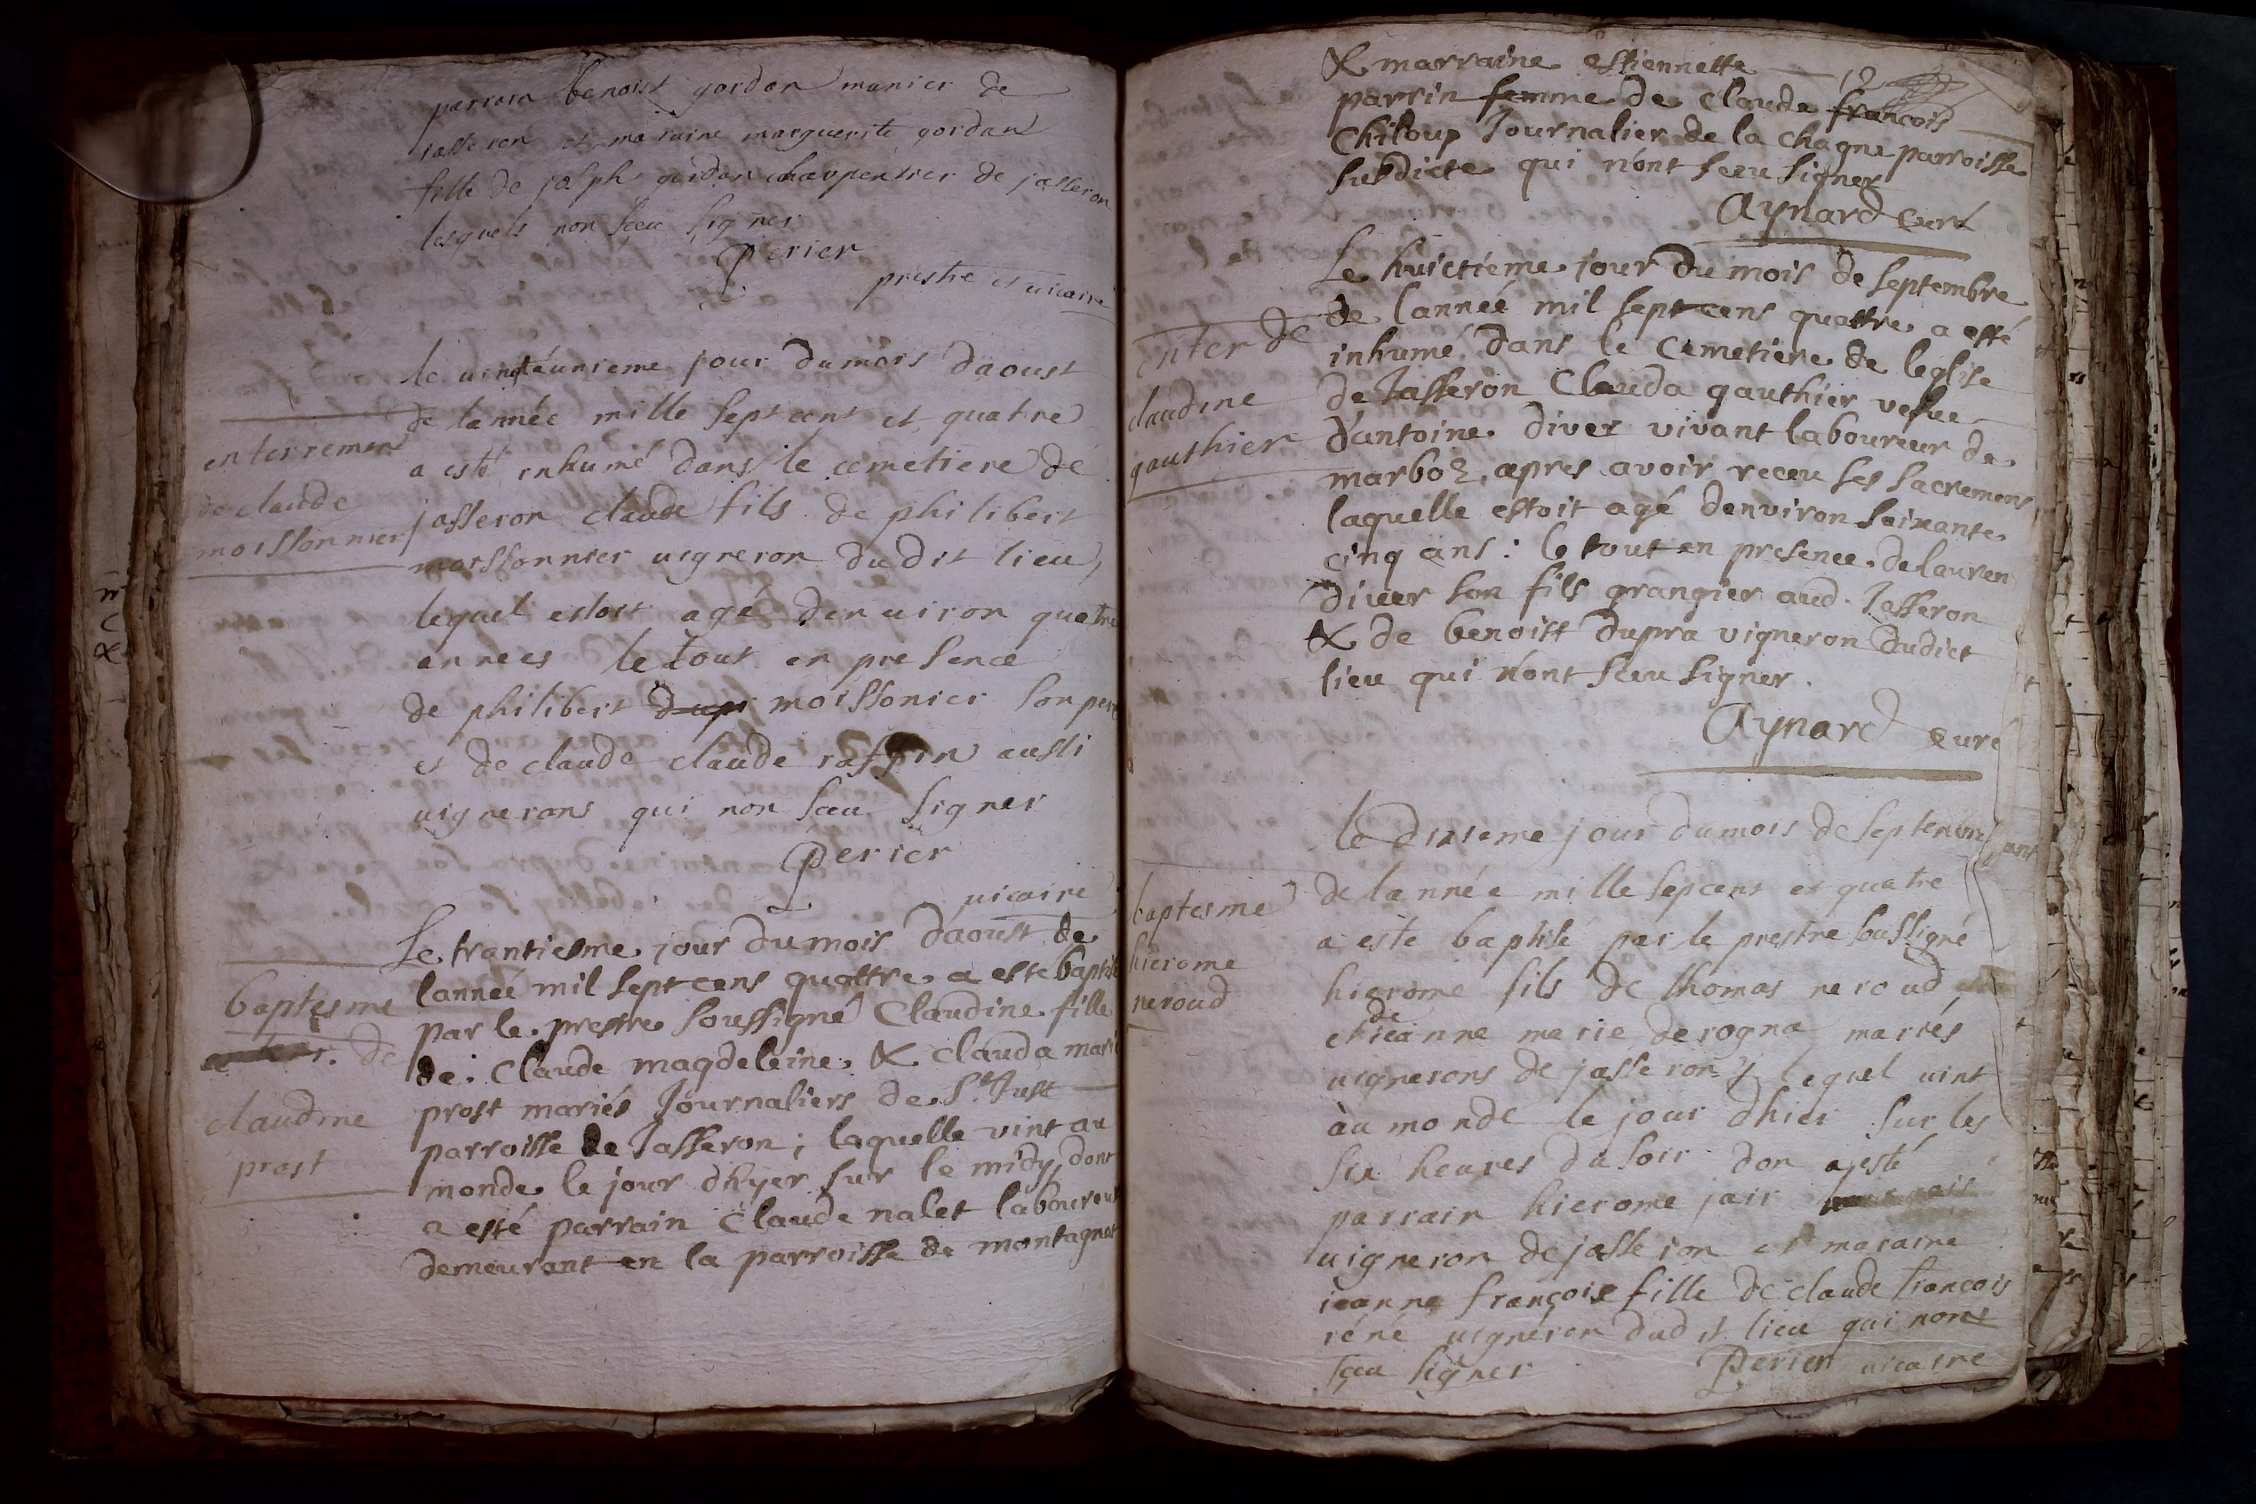 parrain benoist gordan munier de
jasseron et maraine marguerite gordan
fille de joseph gordan charpentier de jasseron
lesquels non sceu signer
Perier
prestre et vicaire
enterremen
de claude
moissonnier
le vingtéunieme jour du mois daoust
de lannée mille sept cent et quatre
a esté inhumé dans le cemetiere de
jasseron claude fils de philibert
moissonnier vigneron dudit lieu,
lequel estoit agé denuiron quatre
annees le tout en presence
de philibert moissonier son pere
et de claude claude raffin aussi
vignerons qui non sceu signer
Perier
vicaire
baptesme
de
claudine
prost
Le trantiesme jour du mois daoust de
lannéé mil sept cens quattre a esté baptisé
par le prestre soussigné Claudine fille
de Claude magdeleine & clauda mari
prost mariés Journaliers de St Just
parroisse de Jasseron; laquelle vint au
monde le jour dhyer sur le midy, dont
a esté parrain Claude nalet laboureur
demeurant en la parroisse de montagnat
& marraine estiennette
parrin femme de claude françois
Chiloup Journalier de la chagne parroisse
susdicte qui n'ont sceu signer
Aynard curé
enter de
claudine
gauthier
Le huictieme jour du mois de septembre
de lannéé mil sept cens quattre a esté
inhumé dans le cemetiere de leglise
de Jasseron Clauda gauthier vefue
d'antoine diver vivant laboureur de
marboz, apres avoir receu ses sacremens
laquelle estoit agé denviron soixante
cinq ans: le tout en presence de lauren
diver son fils grangier aud. Jasseron
& de benoist dupra vigneron dudict
lieu qui n'ont sceu signer.
Aynard curé
baptesme
hierome
neroud
le dixieme jour du mois de septembre
de lannée mille sepcens et quatre
a esté baptise par le prestre soussigné
hierome fils de thomas neroud
et de jeanne marie derogna mariés
vignerons de jasseron, lequel vint
au monde le jour dhier sur les
six heures du soir don a esté
parrain hierome jair
vigneron de jasseron et maraine
jeanne françoise fille de claude françois
réné vigneron dudit lieu qui nont
sceu signer Perier vicaire